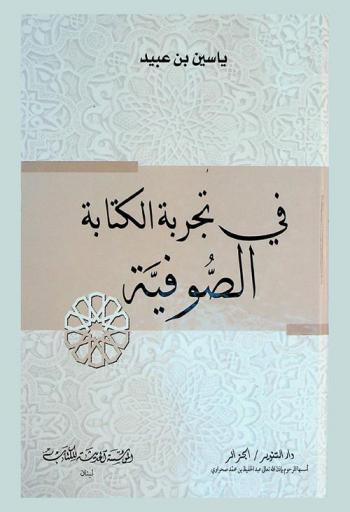 ياسين بن عبيد
في تجربة الكتابة
الصُّوفيَّة
دار التنوير / الجزائر
أسسها المرحوم بإذن الله تعالى عبد الحفيظ بن محمد صحراوي
المؤسسة الحديثة للكتاب
لبنان